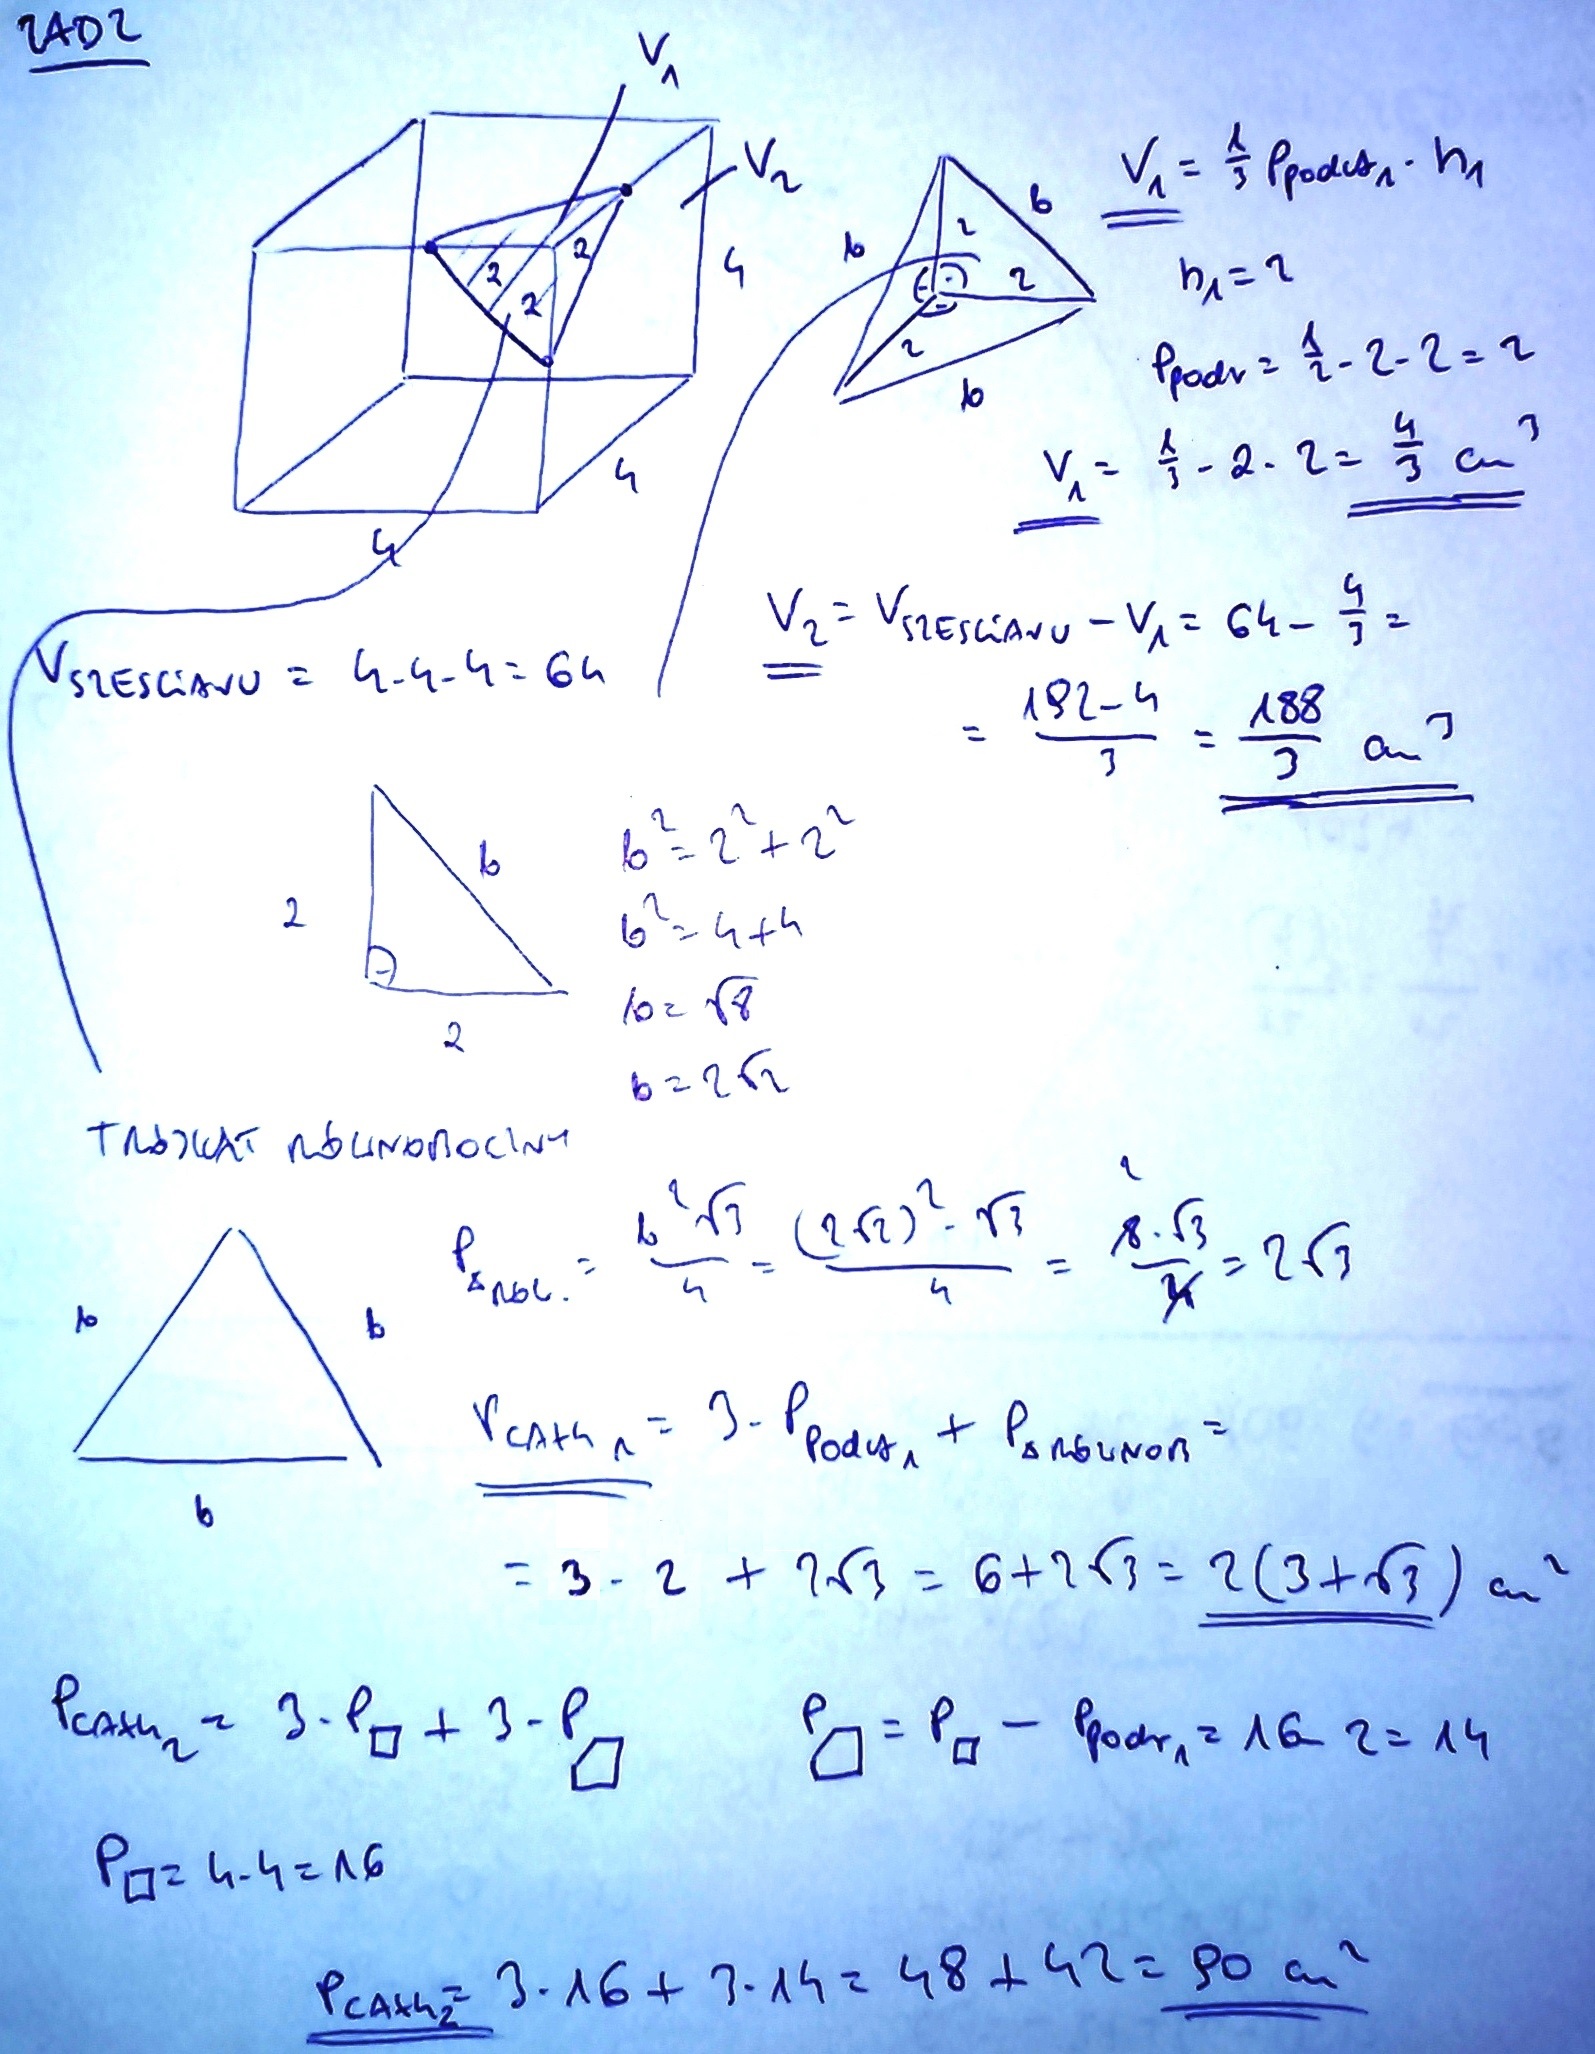 ZAD2
V₁
V₂
2
2
2
4
4
4
b
2
b
2
2
b
V₁ = 1/3 Ppodst₁ · h₁
h₁ = 2
Ppodst = 1/2 · 2 · 2 = 2
V₁ = 1/3 · 2 · 2 = 4/3 cm³
V₂ = VSZEŚCIANU − V₁ = 64 − 4/3 =
VSZEŚCIANU = 4·4·4 = 64
= (192−4)/3 = 188/3 cm³
2
b
2
b² = 2² + 2²
b² = 4+4
b = √8
b = 2√2
TRÓJKĄT RÓWNOBOCZNY
b
b
b
P△RÓW. = b²√3/4 = (2√2)²·√3/4 = 8·√3/4 = 2√3
2
PCAŁK₁ = 3·Ppodst₁ + P△RÓWNOB =
= 3·2 + 2√3 = 6+2√3 = 2(3+√3) cm²
PCAŁK₂ = 3·P□ + 3·P⬠
P⬠ = P□ − Ppodst₁ = 16−2 = 14
P□ = 4·4 = 16
PCAŁK₂ = 3·16 + 3·14 = 48 + 42 = 90 cm²